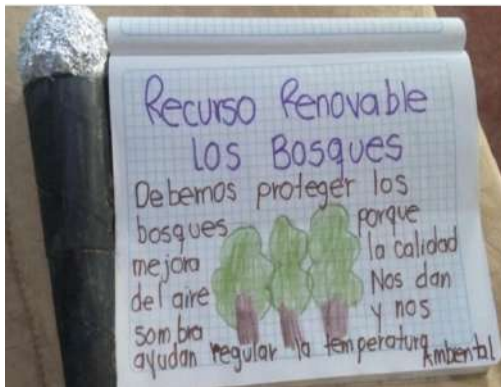 Recurso Renovable
Los Bosques
Debemos proteger los
bosques porque
mejora la calidad
del aire Nos dan
sombra y nos
ayudan regular la temperatura Ambental